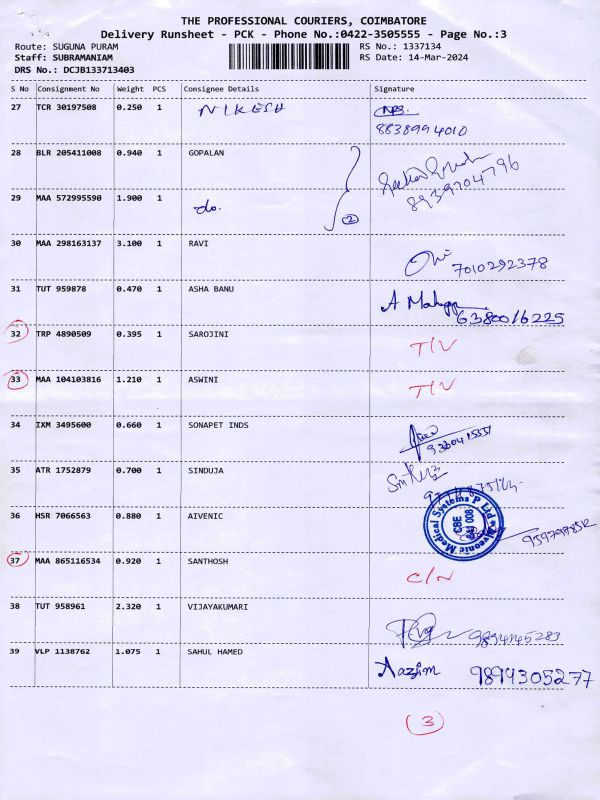 THE PROFESSIONAL COURIERS, COIMBATORE
Delivery Runsheet - PCK - Phone No.:0422-3505555 - Page No.:3
Route: SUGUNA PURAM RS No.: 1337134
Staff: SUBRAMANIAM RS Date: 14-Mar-2024
DRS No.: DCJB133713403
S No Consignment No Weight PCS Consignee Details Signature
27 TCR 30197508 0.250 1 NIKESH
8838994010
28 BLR 205411008 0.940 1 GOPALAN
8939704796
29 MAA 572995590 1.900 1 do. 2
30 MAA 298163137 3.100 1 RAVI
7010292378
31 TUT 959878 0.470 1 ASHA BANU
6380016225
32 TRP 4890509 0.395 1 SAROJINI T/V
33 MAA 104103816 1.210 1 ASWINI T/V
34 IXM 3495600 0.660 1 SONAPET INDS
35 ATR 1752879 0.700 1 SINDUJA
36 HSR 7066563 0.880 1 AIVENIC
Medical Systems P Ltd
CBE
641 008
37 MAA 865116534 0.920 1 SANTHOSH C/N
38 TUT 958961 2.320 1 VIJAYAKUMARI
39 VLP 1138762 1.075 1 SAHUL HAMED Aazim 9894305277
3